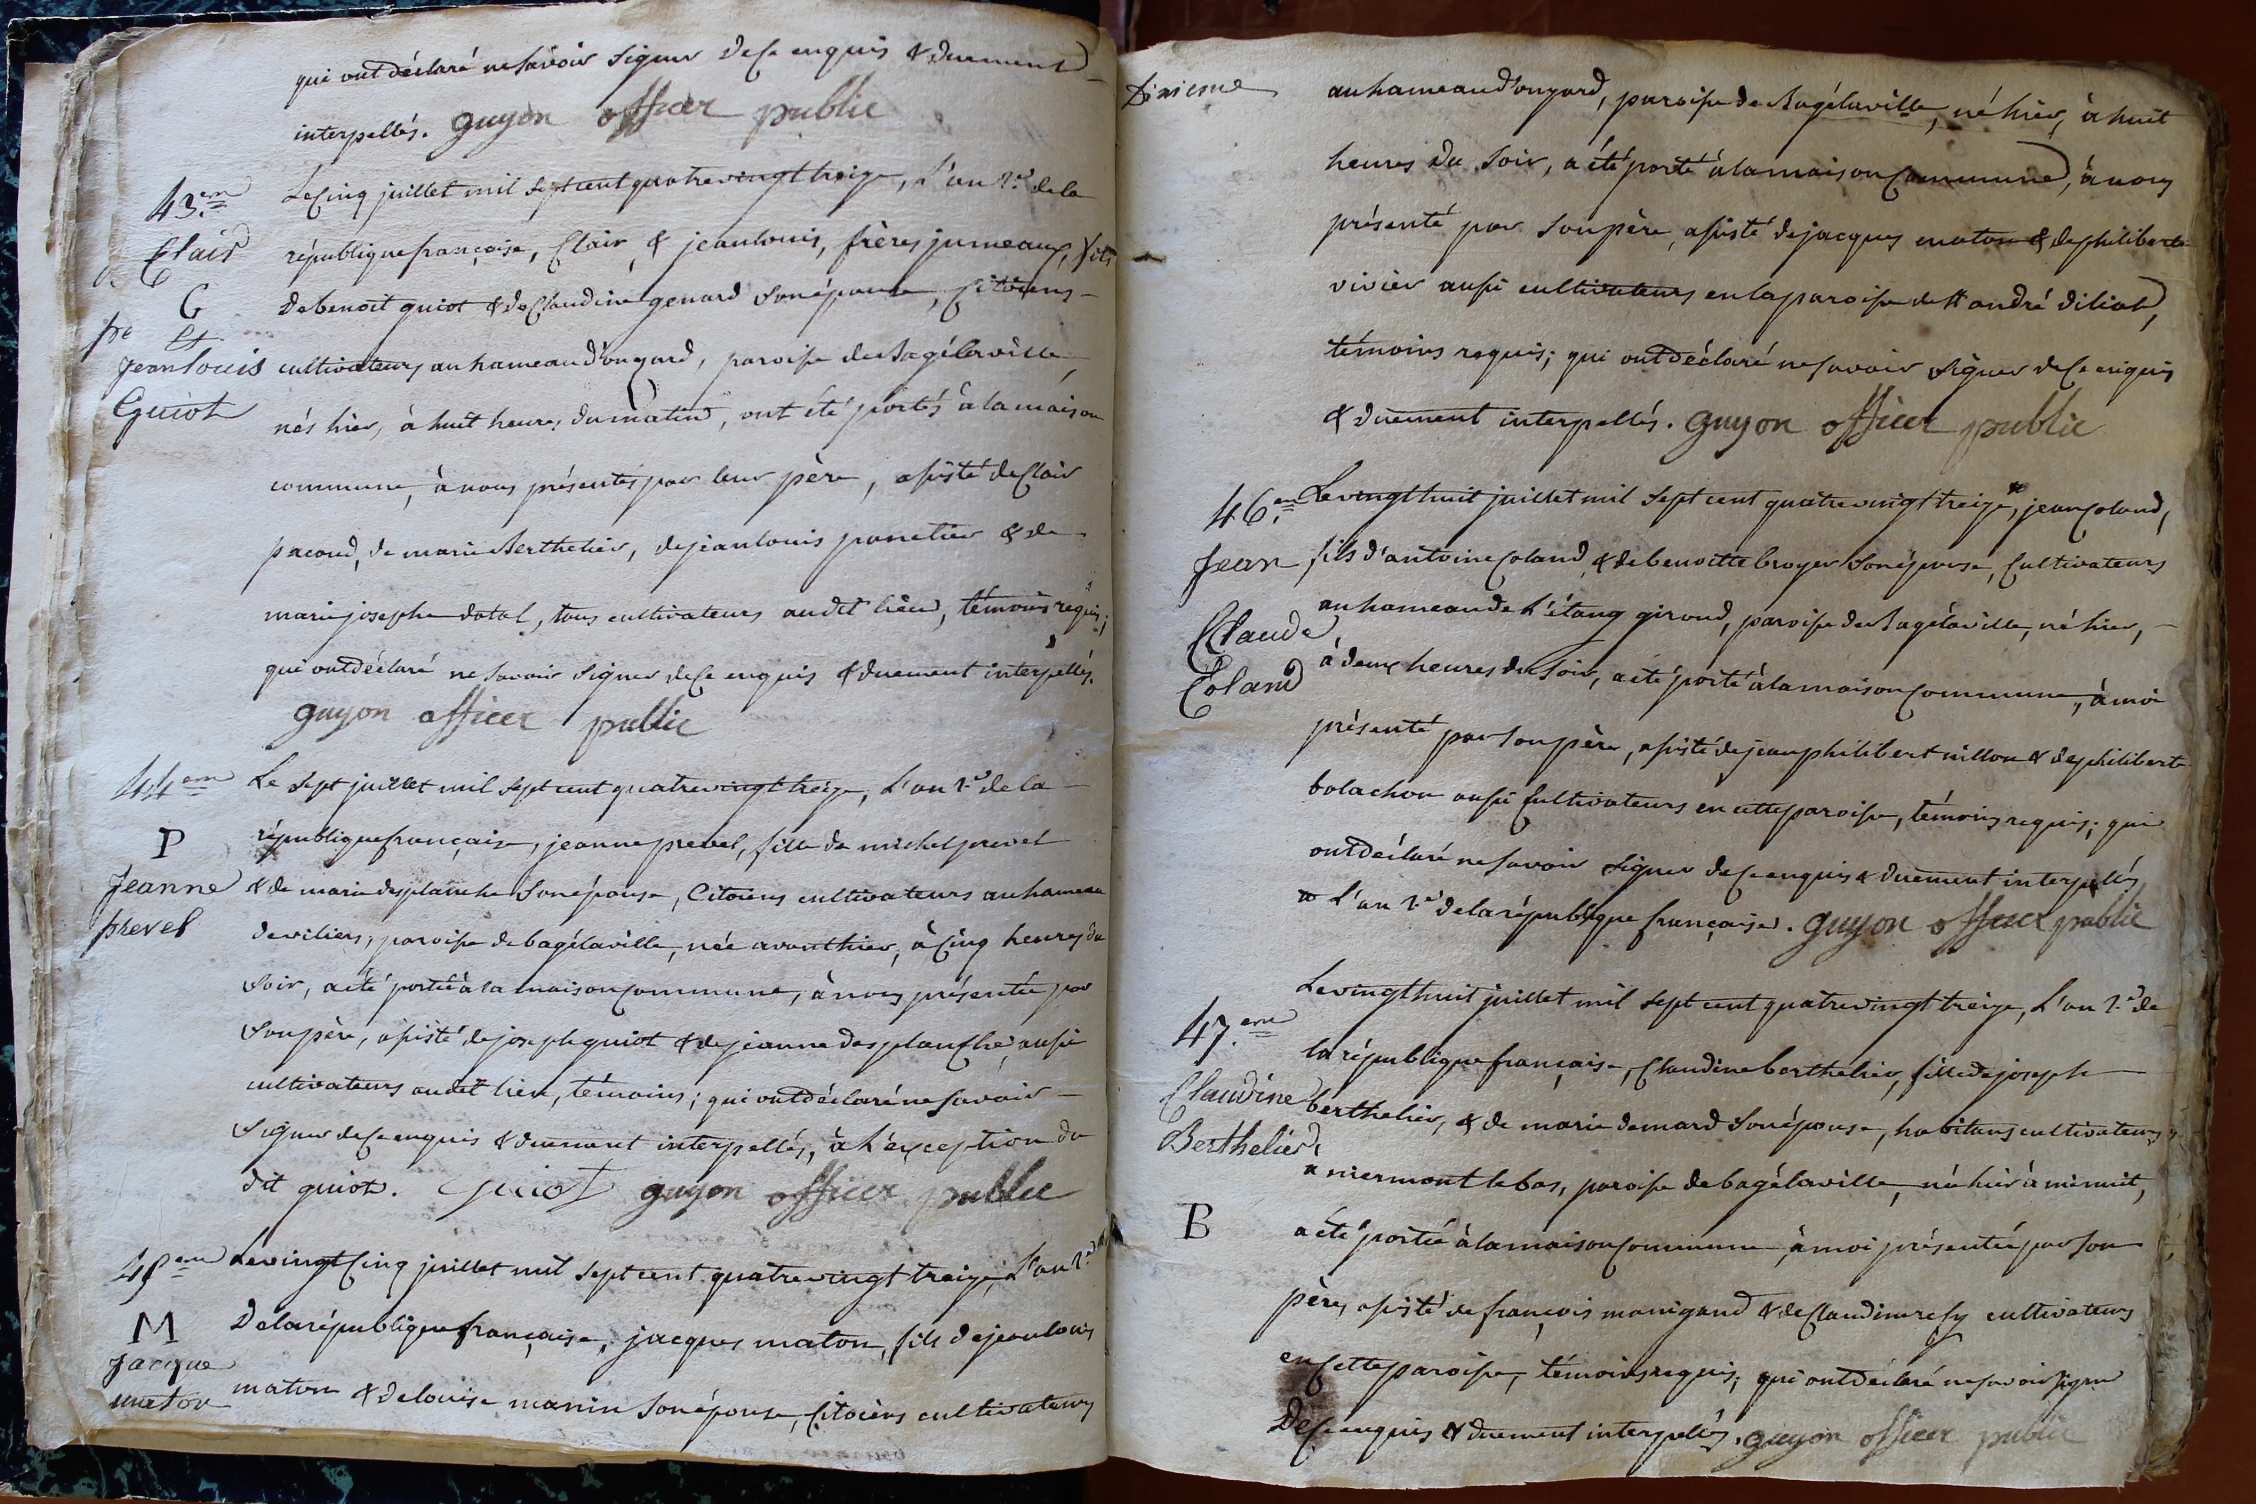 qui ont déclaré ne savoir signer de ce enquis & duement
interpellés. guyon officier public
43.em
Clair
G
&
jeanlouis
Guiot
Le cinq juillet mil sept cent quatrevingt treize, l'an 2.d de la
république française, Clair & jeanlouis, frères jumeaux, fils
de benoit guiot & de Claudine genard son épouse, citoiens
cultivateurs au hameau d'ongard, paroisse de Bagélaville
nés hier, à huit heures du matin, ont été portés à la maison
commune, à nous présentés par leur père, assisté de Clair
pacoud, de marie Berthelier, de jeanlouis panetier & de
marie josephe datal, tous cultivateurs audit lieu, témoins requis;
qui ont déclaré ne savoir signer de ce enquis & duement interpellés.
guyon officier public
44em
P
Jeanne
prevel
Le sept juillet mil sept cent quatrevingt treize, l'an 2.d de la
république française, jeanne prevel, fille de michel prevel
& de marie desplanche son épouse, Citoiens cultivateurs au hameau
de viliers, paroisse de bagélaville, née avant hier, à cinq heures du
soir, a été portée à la maison commune, à nous présentée par
son père, assisté de joseph guiot & de jeanne desplanche, aussi
cultivateurs audit lieu, témoins; qui ont déclaré ne savoir
signer de ce enquis & duement interpellés, à l'exception du
dit guiot. Guiot guyon officier public
45em
M
Jacque
maton
Le vingt cinq juillet mil sept cent quatrevingt treize, l'an 2.d
de la république française, jacques maton, fils de jeanlouis
maton & de louise manin son épouse, citoiens cultivateurs
Dixieme
au hameau d'ongard, paroisse de Bagélaville, né hier, à huit
heures du soir, a été porté à la maison commune, à nous
présenté par son père, assisté de jacques maton & de philiberte
vivier aussi cultivateurs en la paroisse de st andré
témoins requis; qui ont déclaré ne savoir signer de ce enquis
& duement interpellés. guyon officier public
46.em
Jean
Claude
Coland
Le vingt huit juillet mil sept cent quatrevingt treize, jean Coland,
fils d'antoine Coland & de benoitte broyer son épouse, Cultivateurs
au hameau de l'étang giroud, paroisse de Bagélaville, né hier,
à deux heures du soir, a été porté à la maison commune, à moi
présenté par son père, assisté de jean philibert nillon & de philiberte
bolachon aussi Cultivateurs en cette paroisse, témoins requis; qui
ont déclaré ne savoir signer de ce enquis & duement interpellés
l'an 2.d de la république française. guyon officier public
47.eme
Claudine
Berthelier
B
Le vingt huit juillet mil sept cent quatrevingt treize, l'an 2.d de
la république française, Claudine berthelier, fille de joseph
berthelier, & de marie demard son épouse, habitans cultivateurs
à niermont le bas, paroisse de bagélaville, née hier à minuit,
a été portée à la maison commune, à moi présentée par son
père, assisté de françois manigand & de Claudine resy cultivateurs
en cette paroisse, témoins requis, qui ont déclaré ne savoir signer
de ce enquis & duement interpellés. guyon officier public